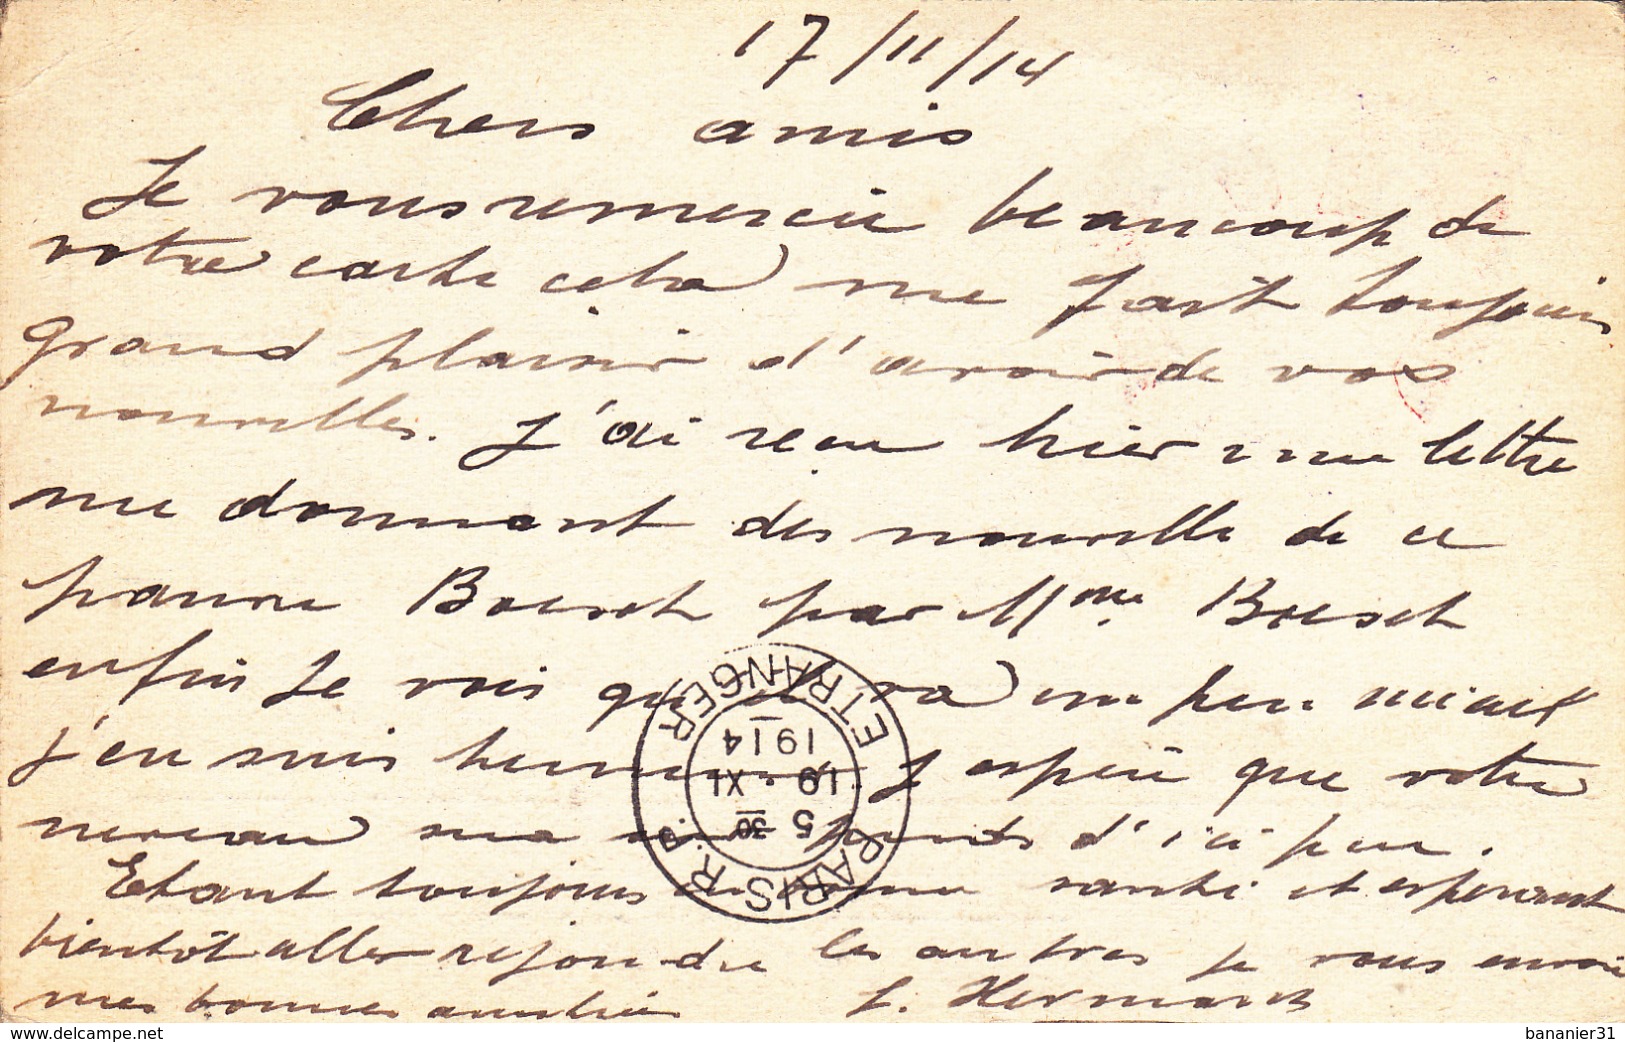 17/11/14
Chers amis
Je vous remercie beaucoup de
votre carte cela me fait toujours
grand plaisir d'avoir de vos
nouvelles. J'ai reçu hier une lettre
me donnant des nouvelle de ce
pauvre Boesch par Mme Boesch
enfin je vois qu'il va un peu mieux
j'en suis heureux. J'espère que votre
neveau ma d'ici peu.
Etant toujours en bonne santé et espérant
bientôt aller rejoindre les autres je vous envoie
mes bonnes amitiés J. Hermann
PARIS R.P. ETRANGER
5 30
19 - XI
1914
delcampe.net
bananier31